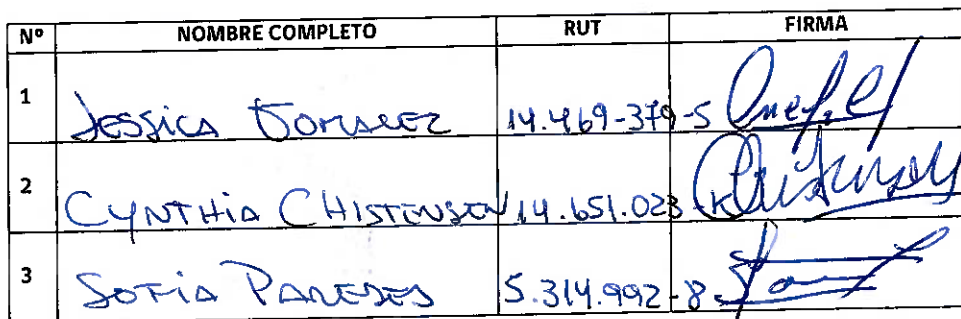 Nº NOMBRE COMPLETO RUT FIRMA
1 Jessica 14.469-379-5
2 CYNTHIA CHISTENSEN 14.651.023-K
3 SOFIA PAREDES 5.314.992-8